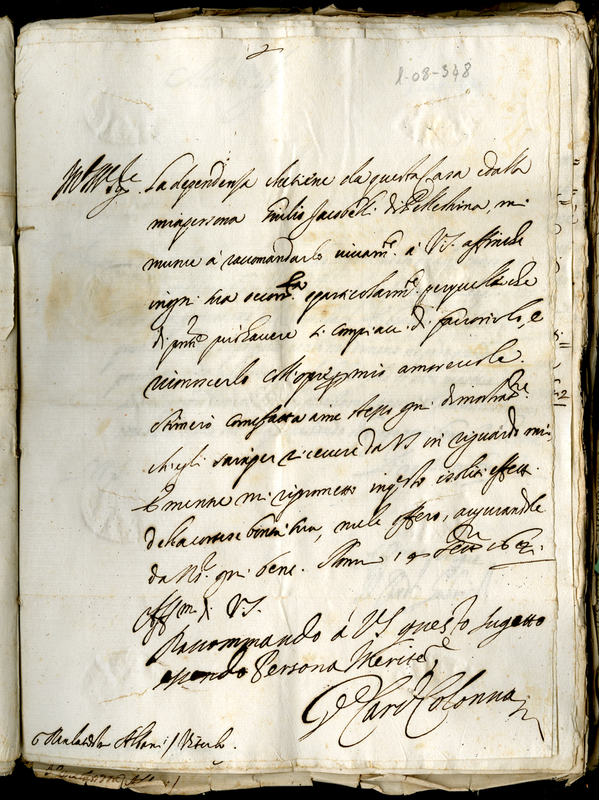 l-08-348
La dependenza che tiene da questa Casa e dalla
mia persona Giulio Jacobelli di
muove à raccomandarlo vivam.te à VS. affinche
in ogni sua occorr.za e particolarm.te per quella che
di pñte può havere si compiacci di favorirlo, e
riconoscerlo amorevole.
Stimerò come fatta à me stesso ogni dimostraz.ne
ch'egli sarà per ricevere da VS in riguardo mio
E mentre mi riprometto in questo i soliti effetti
della cortese bontà sua, me le offero, augurandole
da N.S. ogni bene. Roma
Aff.mo di VS.
Raccommando à VS questo sugetto
essendo Persona Meritev.e
G. Card. Colonna
Albani / Viterbo.